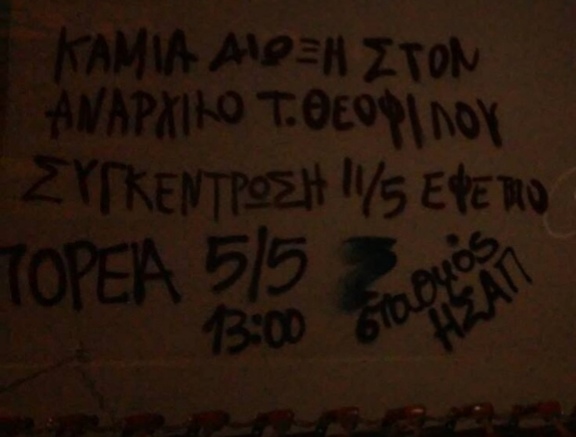 ΚΑΜΙΑ ΔΙΩΞΗ ΣΤΟΝ
ΑΝΑΡΧΙΚΟ Τ. ΘΕΟΦΙΛΟΥ
ΣΥΓΚΕΝΤΡΩΣΗ 11/5 ΕΦΕΤΕΙΟ
ΠΟΡΕΙΑ 5/5
13:00
σταθμός
ΗΣΑΠ